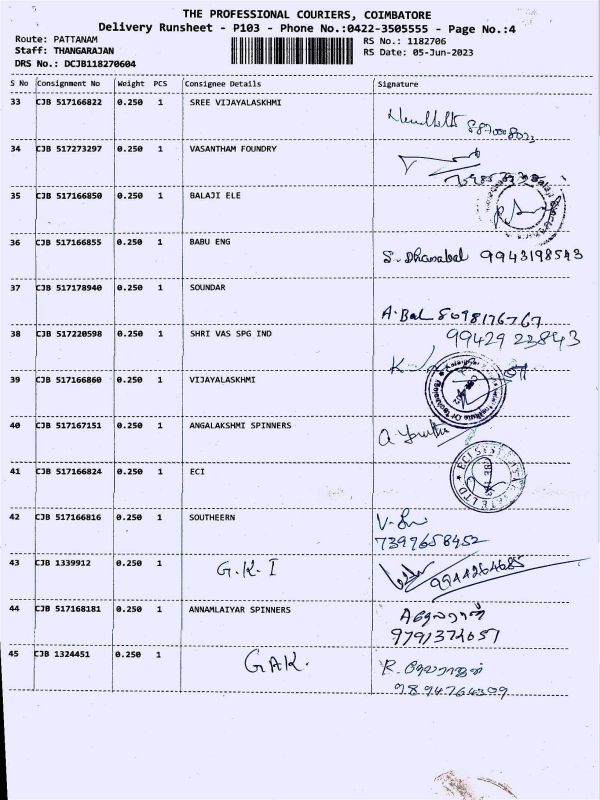 THE PROFESSIONAL COURIERS, COIMBATORE
Delivery Runsheet - P103 - Phone No.:0422-3505555 - Page No.:4
Route: PATTANAM
RS No.: 1182706
Staff: THANGARAJAN
RS Date: 05-Jun-2023
DRS No.: DCJB118270604
S No Consignment No Weight PCS Consignee Details Signature
33 CJB 517166822 0.250 1 SREE VIJAYALASKHMI
34 CJB 517273297 0.250 1 VASANTHAM FOUNDRY
35 CJB 517166850 0.250 1 BALAJI ELE
36 CJB 517166855 0.250 1 BABU ENG
S. Dhanabal 9943198543
37 CJB 517178940 0.250 1 SOUNDAR
A. Bal 8098176767
38 CJB 517220598 0.250 1 SHRI VAS SPG IND
99429 22843
39 CJB 517166860 0.250 1 VIJAYALASKHMI
40 CJB 517167151 0.250 1 ANGALAKSHMI SPINNERS
41 CJB 517166824 0.250 1 ECI
42 CJB 517166816 0.250 1 SOUTHEERN
7397658452
43 CJB 1339912 0.250 1 G.K.I
9944264685
44 CJB 517168181 0.250 1 ANNAMLAIYAR SPINNERS
9791372651
45 CJB 1324451 0.250 1 GAK.
9894764399